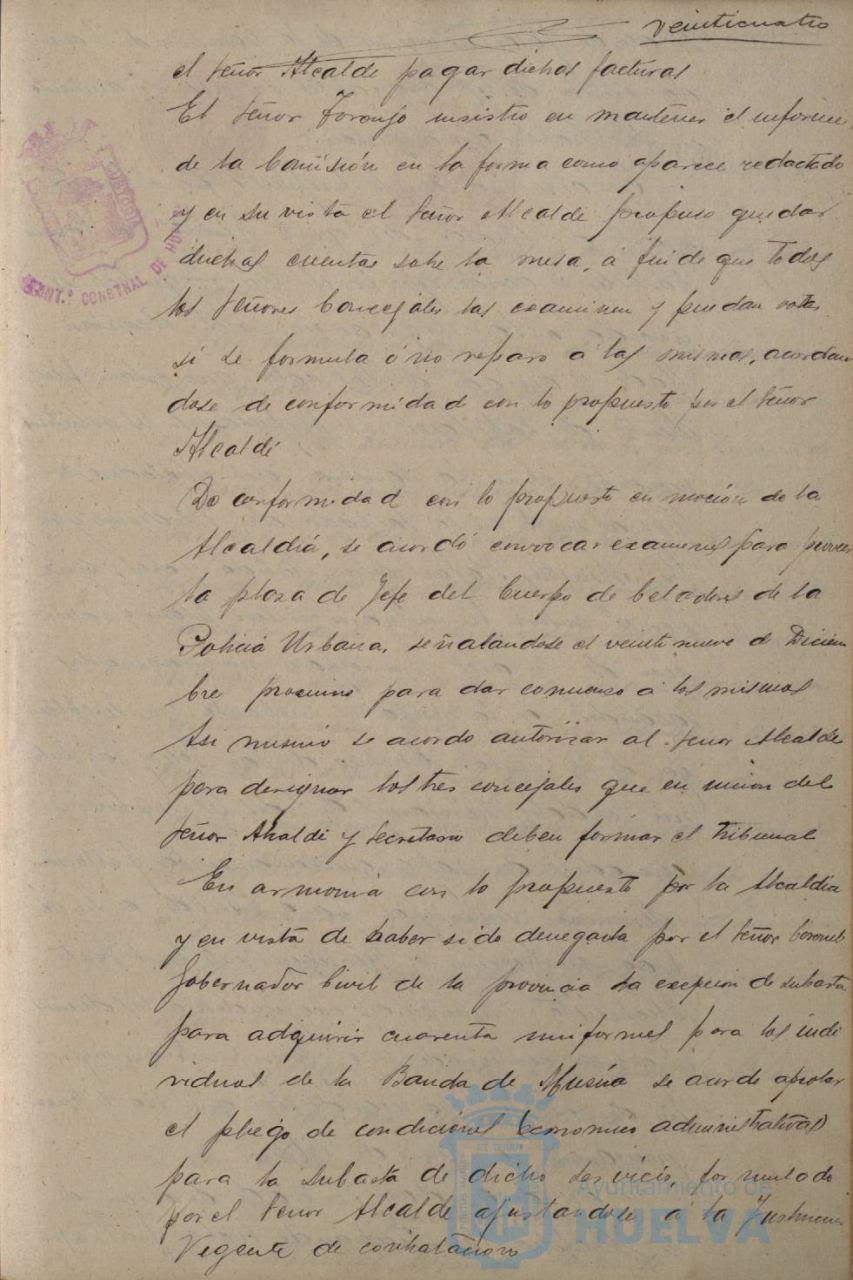 veinticuatro
el señor Alcalde pagar dichas facturas
El señor Toronjo insistio en mantener el informe
de la Comisión en la forma como aparece redactado
y en su vista el señor Alcalde propuso quedar
dichas cuentas sobre la mesa, á fin de que todos
los señores Concejales las examinen y puedan votar
si se formula ó no reparo á las mismas, acordan
dose de conformidad con lo propuesto por el señor
Alcalde
De conformidad con lo propuesto en moción de la
Alcaldia, se acordó convocar examenes para proveer
la plaza de Jefe del Cuerpo de Celadores de la
Policia Urbana, señalandose el veintinueve de Diciem
bre proximo para dar comienzo á los mismos
Asi mismo se acordo autorizar al señor Alcalde
para designar los tres concejales que en union del
señor Alcalde y Secretario deben formar el tribunal
En armonia con lo propuesto por la Alcaldia
y en vista de haber sido denegada por el señor Coronel
Gobernador Civil de la provincia la exepcion de subasta
para adquirir cuarenta uniformes para los indi
viduos de la Banda de Musica se acordo aprobar
el pliego de condiciones economico administrativas
para la subasta de dicho servicio, formulado
por el señor Alcalde ajustandose á la Instruccion
Vegente de contratacion
AYUNT.º CONSTNAL DE HUELVA
Ayuntamiento de
HUELVA